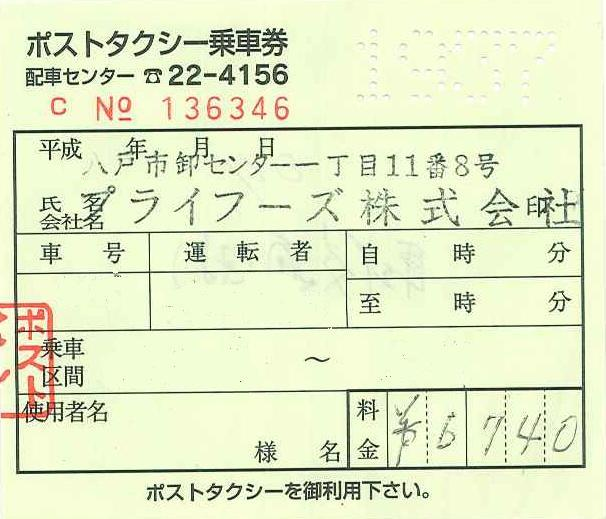 ポストタクシー乗車券
配車センター ☎22-4156
C № 136346
平成 年 月 日
八戸市卸センター一丁目11番8号
氏名
会社名
プライフーズ株式会社
印
車号 運転者 自 時 分
至 時 分
乗車
区間
〜
ポスト
使用者名
様名
料金
¥6740
ポストタクシーを御利用下さい。